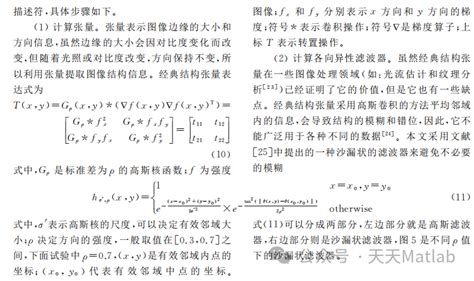 描述符，具体步骤如下。
(1) 计算张量。张量表示图像边缘的大小和
方向信息，虽然边缘的大小会因对比度变化而改
变，但随着光照或对比度改变，方向保持不变，所
以利用张量提取图像结构信息。经典结构张量表
达式为
T(x,y)=Gρ(x,y)*(∇f(x,y)∇f(x,y)ᵀ)=
[Gρ*fx² Gρ*fxfy
Gρ*fyfx Gρ*fy²]=[t11 t12
t21 t22]
(10)
式中，Gρ 是标准差为 ρ 的高斯核函数；f 为强度
图像；fx 和 fy 分别表示 x 方向和 y 方向的梯
度；符号 * 表示卷积操作；符号∇是梯度算子；上
标 T 表示转置操作。
(2) 计算各向异性滤波器。虽然经典结构张
量在一些图像处理领域(如：光流估计和纹理分
析[23])已经证明了它的价值，但是它也有一些缺
点。经典结构张量采用高斯卷积的方法平均邻域
内的信息，会导致结构的模糊和错位，因此，它不
能广泛用于各种不同的数据[24]。本文采用文献
[25]中提出的一种沙漏状的滤波器来避免不必要
的模糊
hσ′,ρ(x,y)={1 x=x0,y=y0
otherwise
(11)
式中，σ′表示高斯核的尺度，可以决定有效邻域大
小；ρ 决定方向的强度，一般取值在[0.3,0.7]之
间，下面试验中 ρ=0.7，(x,y)是有效邻域内点的
坐标；(x0,y0)代表有效邻域中点的坐标。
式(11)可以分成两部分，左边部分就是高斯滤波
器，右边部分则是沙漏状滤波器，图 5 是不同 ρ 值
下的沙漏状滤波器。
公众号 · 天天Matlab